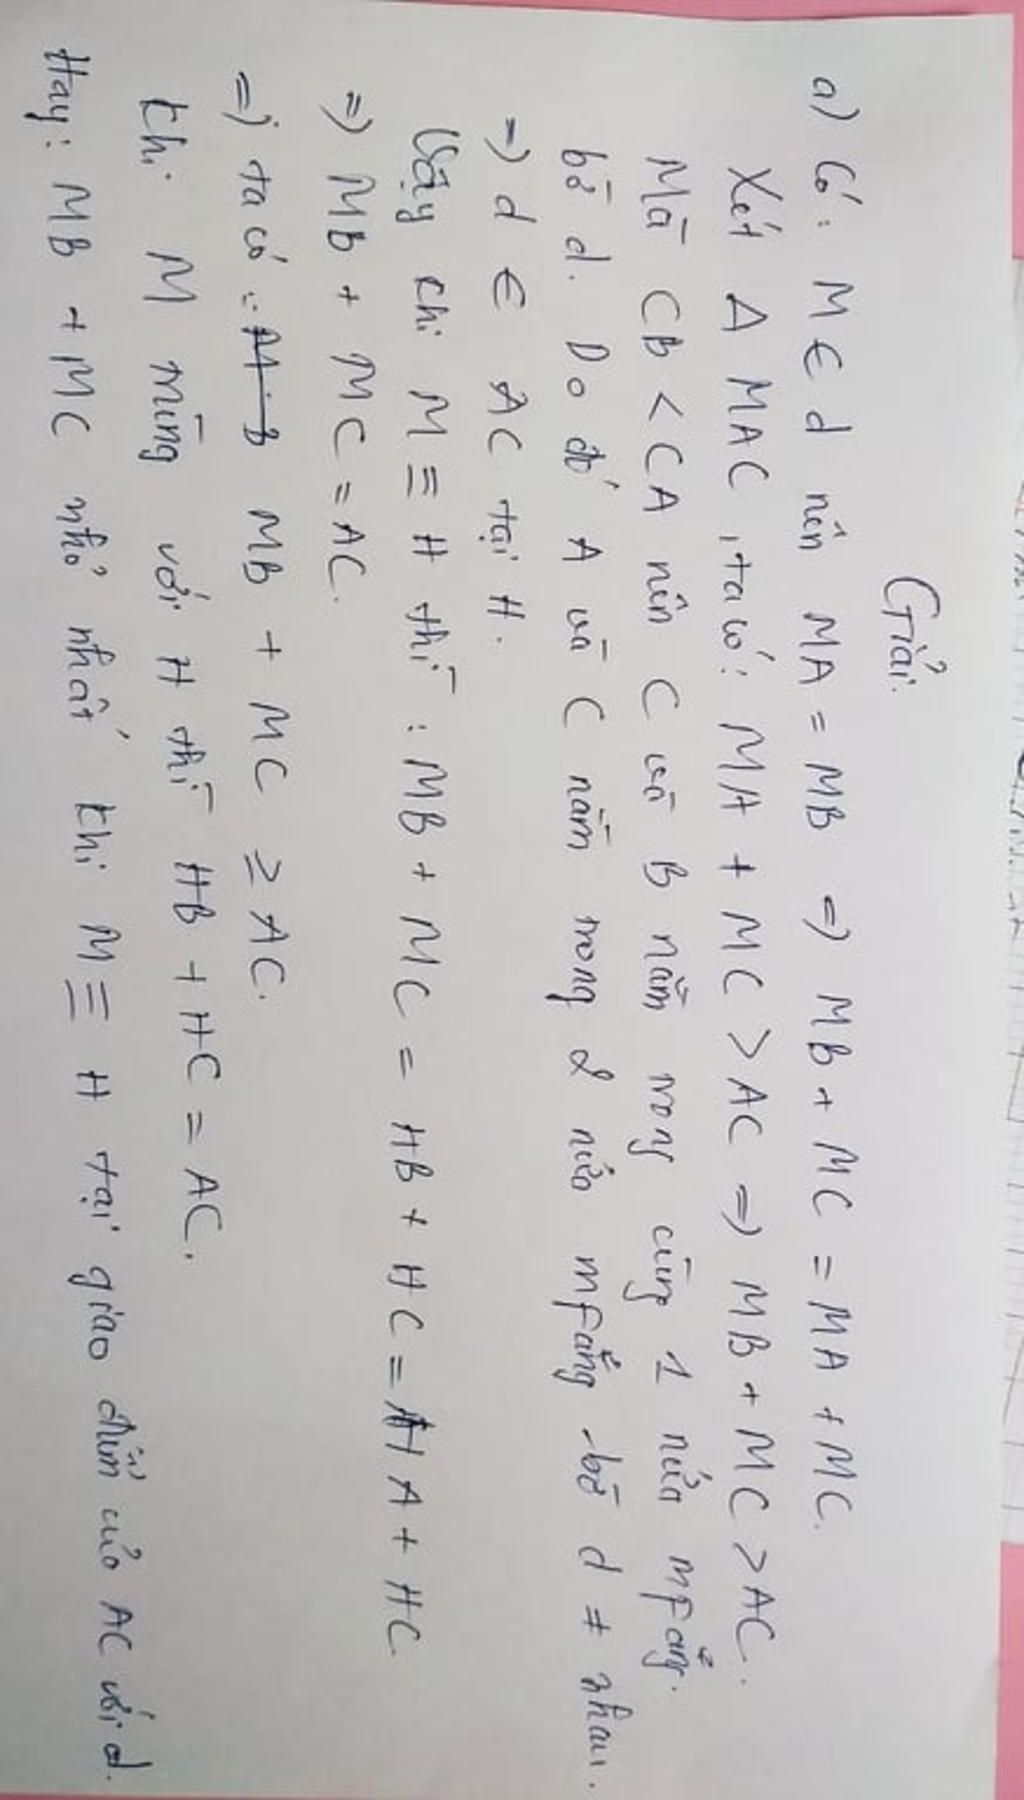 Giải.
a) Có: M ∈ d nên MA = MB => MB + MC = MA + MC.
Xét Δ MAC, ta có: MA + MC > AC => MB + MC > AC.
Mà CB < CA nên C và B nằm trong cùng 1 nửa mfẳng.
bờ d. Do đó A và C nằm trong 2 nửa mfẳng bờ d ≠ nhau.
=> d ∈ AC tại H.
Vậy khi M ≡ H thì: MB + MC = HB + HC = HA + HC
=> MB + MC = AC.
=> ta có: MB + MC ≥ AC.
Khi M trùng với H thì HB + HC = AC.
Hay: MB + MC nhỏ nhất khi M ≡ H tại giao điểm của AC với d.